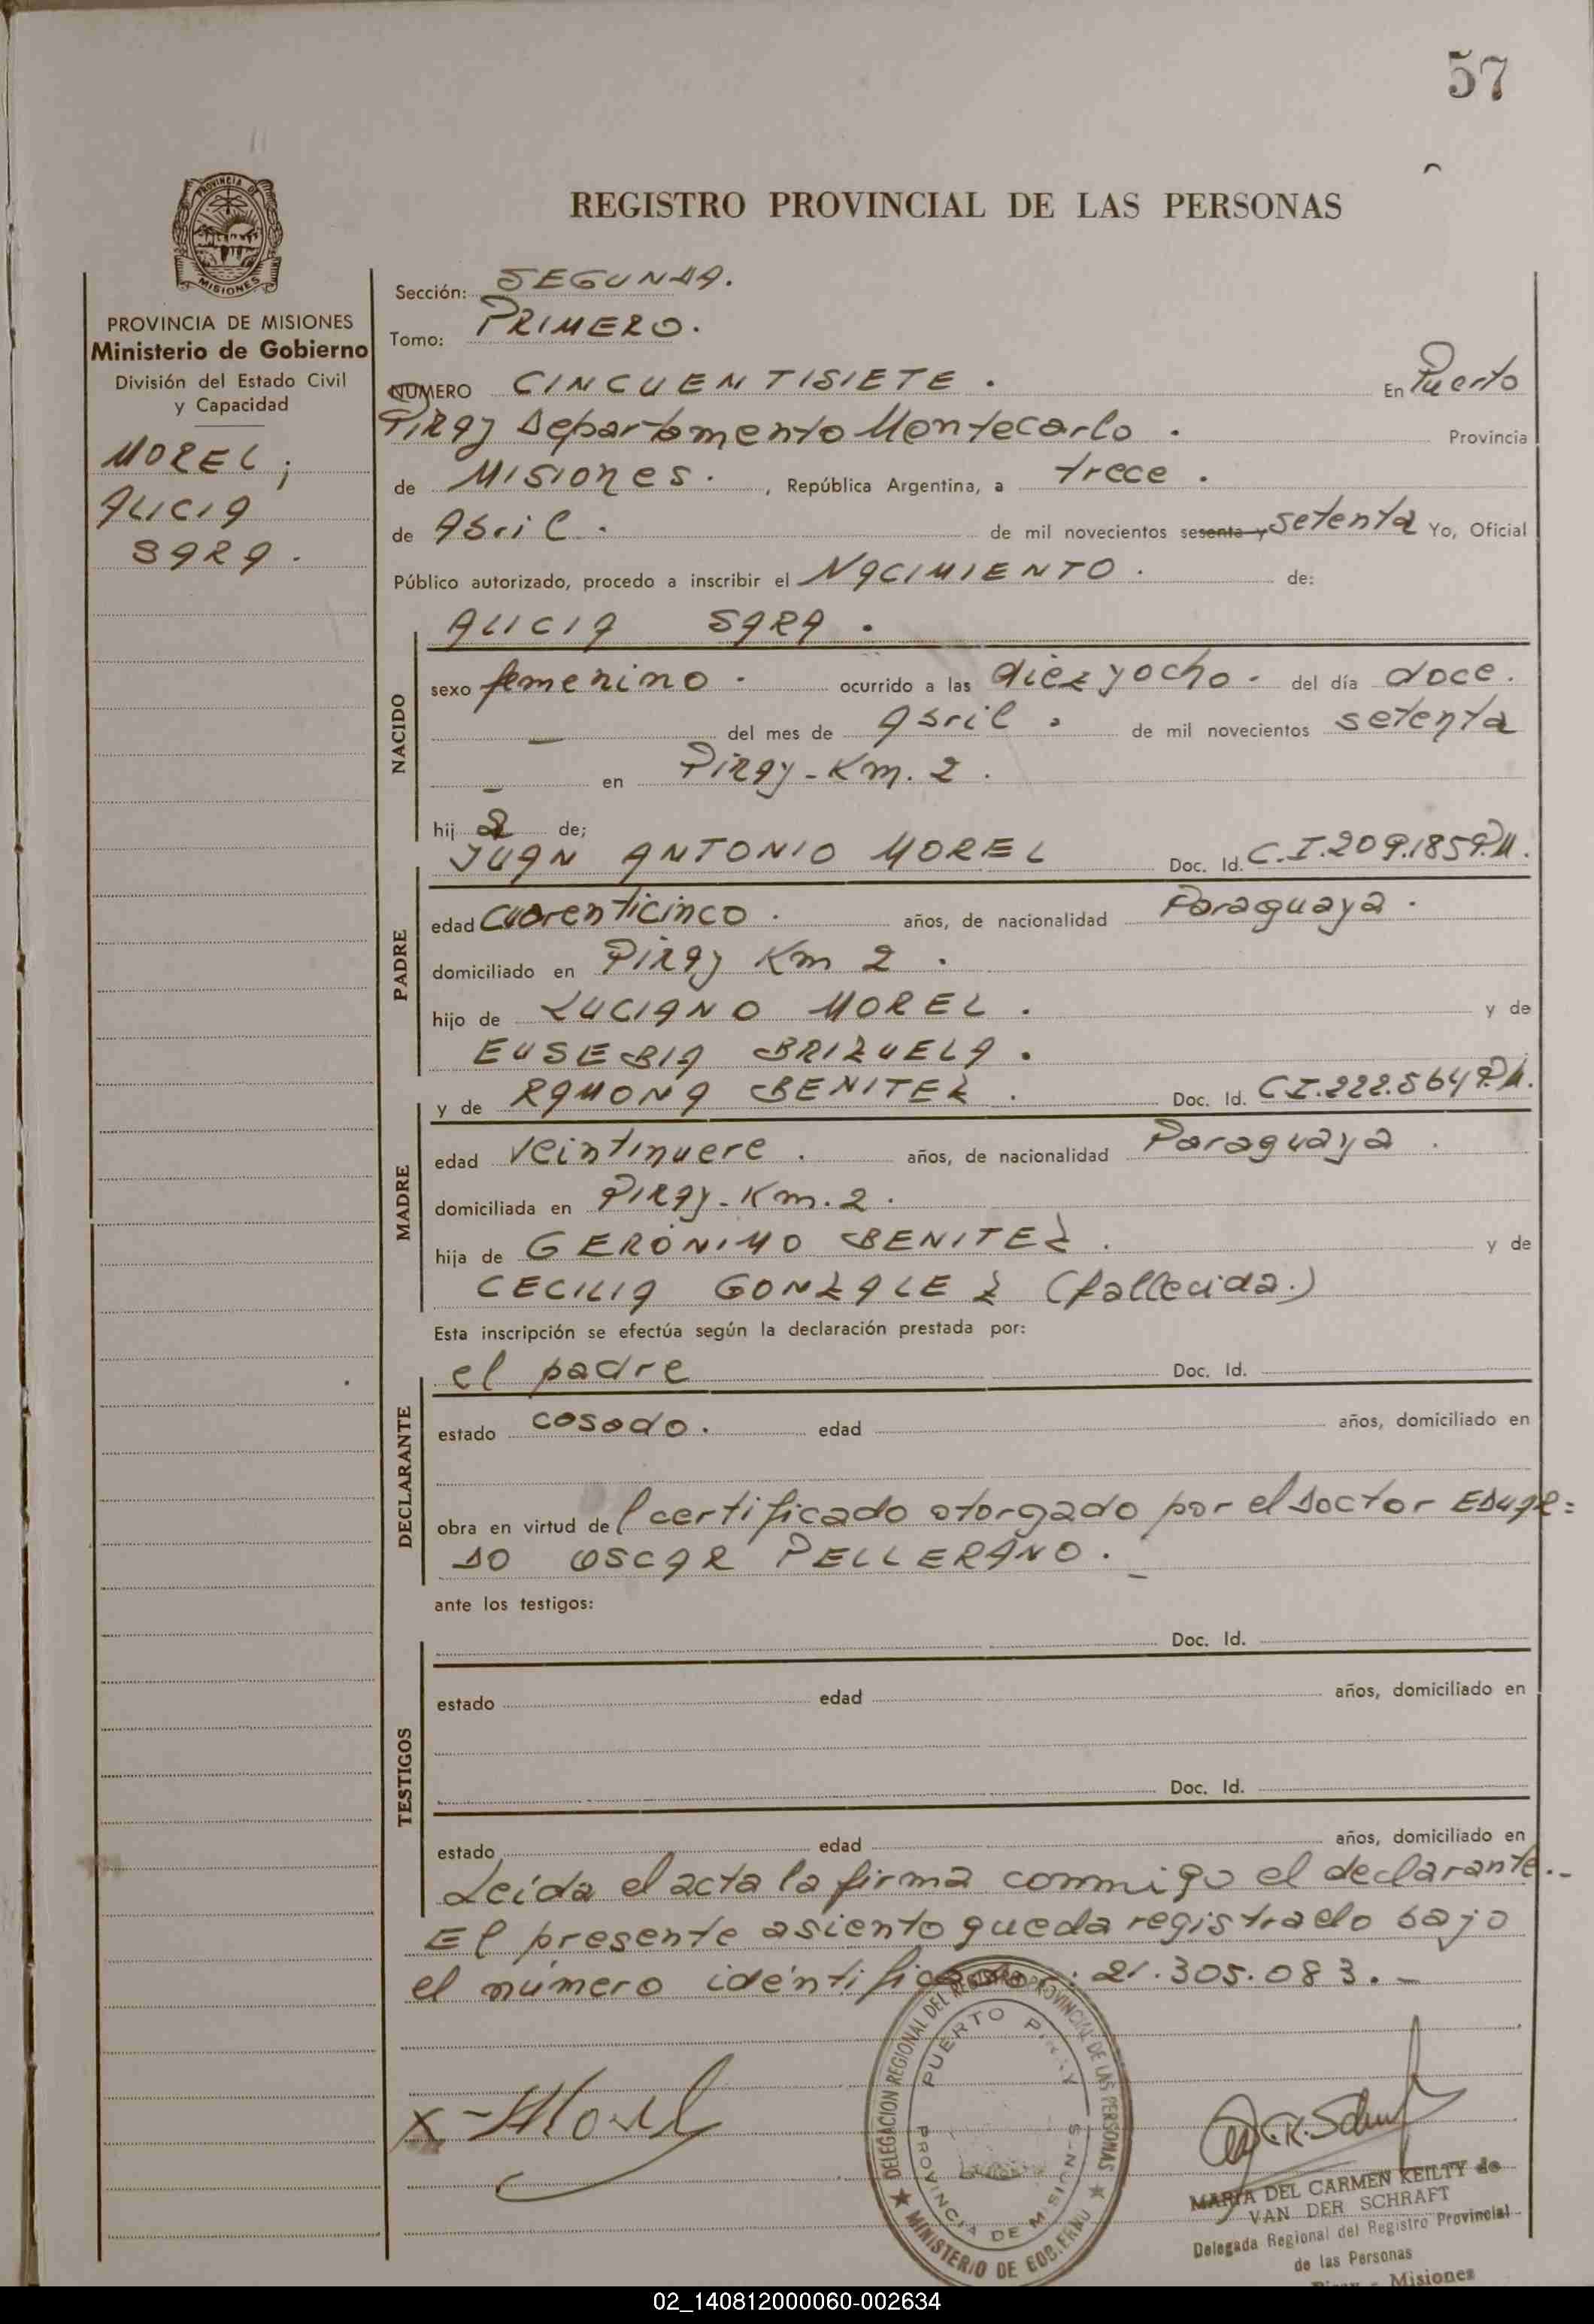 57
REGISTRO PROVINCIAL DE LAS PERSONAS
PROVINCIA DE
MISIONES
PROVINCIA DE MISIONES
Ministerio de Gobierno
División del Estado Civil
y Capacidad
MOREL,
ALICIA
SARA.
Sección: SEGUNDA.
Tomo: PRIMERO.
NUMERO CINCUENTISIETE. En Puerto
PIRAY Departamento Montecarlo. Provincia
de MISIONES., República Argentina, a trece.
de Abril. de mil novecientos sesenta y setenta Yo, Oficial
Público autorizado, procedo a inscribir el NACIMIENTO. de:
NACIDO
ALICIA SARA.
sexo femenino. ocurrido a las diez y ocho. del día doce.
— del mes de Abril. de mil novecientos setenta
— en PIRAY-Km. 2.
hij a de;
PADRE
JUAN ANTONIO MOREL Doc. Id. C.I.209.185P.M.
edad cuarenticinco. años, de nacionalidad Paraguaya.
domiciliado en PIRAY Km 2.
hijo de LUCIANO MOREL. y de
EUSEBIA BRIZUELA.
MADRE
y de RAMONA BENITEZ. Doc. Id. C.I.222.564P.M.
edad veintinueve. años, de nacionalidad Paraguaya.
domiciliada en PIRAY-Km.2.
hija de GERÓNIMO BENITEZ. y de
CECILIA GONZALEZ (fallecida.)
Esta inscripción se efectúa según la declaración prestada por:
DECLARANTE
el padre Doc. Id.
estado casado. edad años, domiciliado en
obra en virtud de l certificado otorgado por el Doctor EDUAR=
DO OSCAR PELLERANO.
ante los testigos:
TESTIGOS
Doc. Id.
estado edad años, domiciliado en
Doc. Id.
estado edad años, domiciliado en
Leída el acta la firma conmigo el declarante.-
El presente asiento queda registrado bajo
el número identificador: 21.305.083.-
x-Morel
DELEGACION REGIONAL DEL REGISTRO PROVINCIAL DE LAS PERSONAS
MINISTERIO DE GOBIERNO
PUERTO PIRAY
PROVINCIA DE MISIONES
MARIA DEL CARMEN KEILTY de
VAN DER SCHRAFT
Delegada Regional del Registro Provincial
de las Personas
Piray - Misiones
02_140812000060-002634